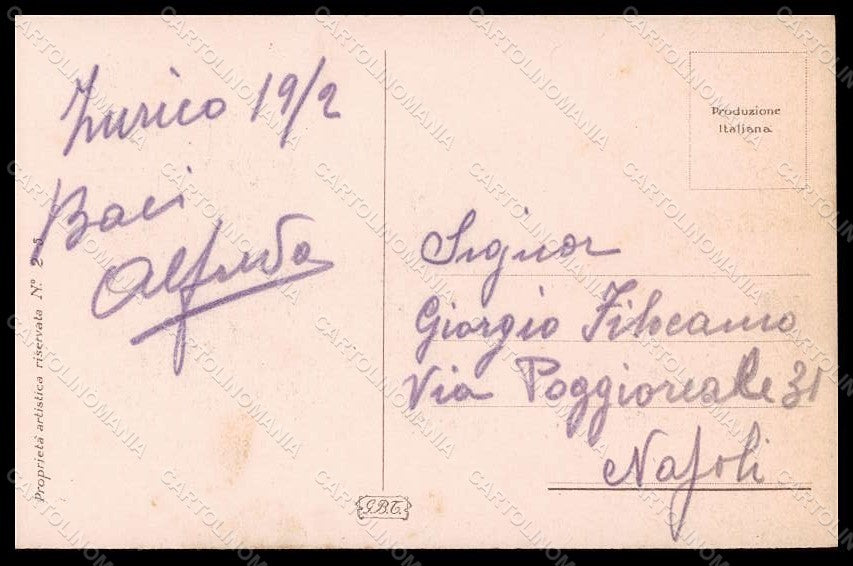 Zurico 19/2
Baci
Alfredo
Produzione
Italiana
Signor
Giorgio Filocamo
Via Poggioreale 31
Napoli
Proprietà artistica riservata N.° 2 5
G.B.T.
CARTOLINOMANIA